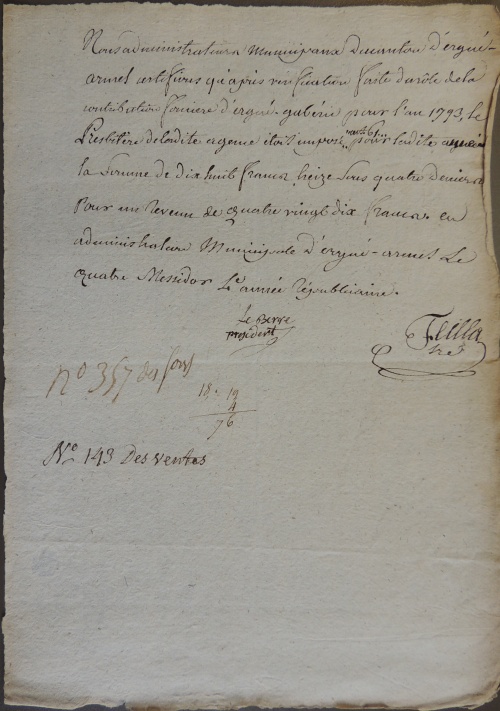 Nous administrateurs Municipaux du canton d'ergué-
armel certifions qu'après vérification faite du rôle de la
contribution foncière d'ergué-gabéric pour l'an 1793, le
Presbitère de ladite agence étoit imposé pour ladite année
la somme de dix huit francs, seize sous quatre deniers
Pour un revenu de quatre vingt dix francs. en
administration Municipale d'ergué-armel Le
quatre Messidor 4e année républicaine.
Le Berre
président
Feilla
n° 357 des
18. 19
4
76
N° 143 Des ventes